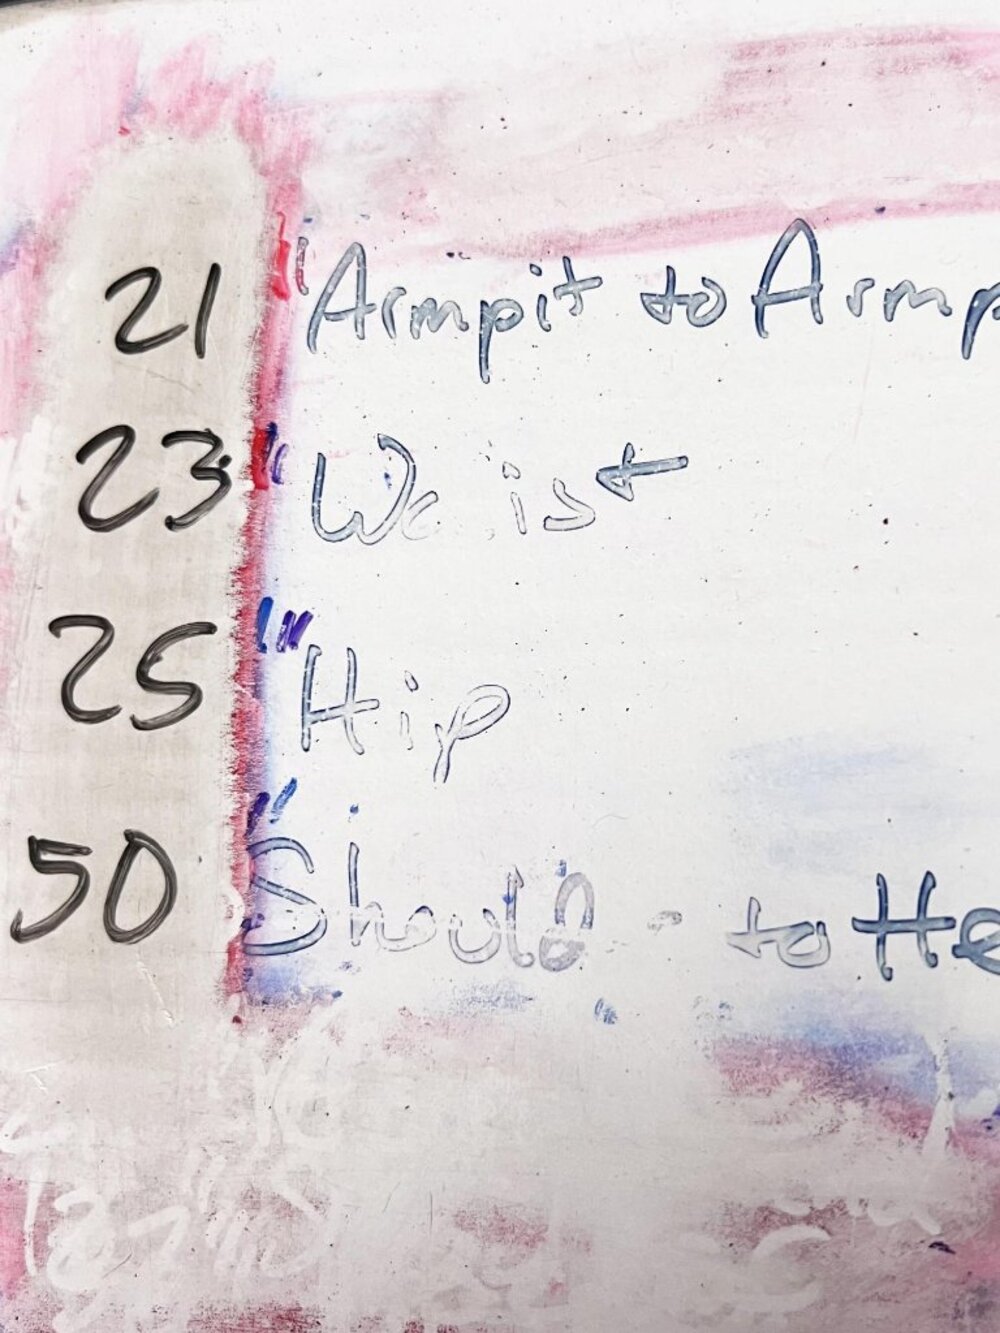 21" Armpit to Armp
23" Waist
25" Hip
50" Should to He